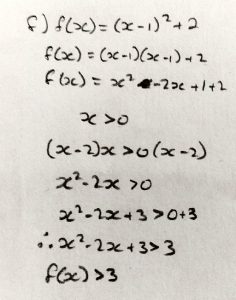 f) f(x) = (x-1)² + 2
f(x) = (x-1)(x-1) + 2
f(x) = x² - 2x + 1 + 2
x > 0
(x-2)x > 0(x-2)
x² - 2x > 0
x² - 2x + 3 > 0 + 3
∴ x² - 2x + 3 > 3
f(x) > 3